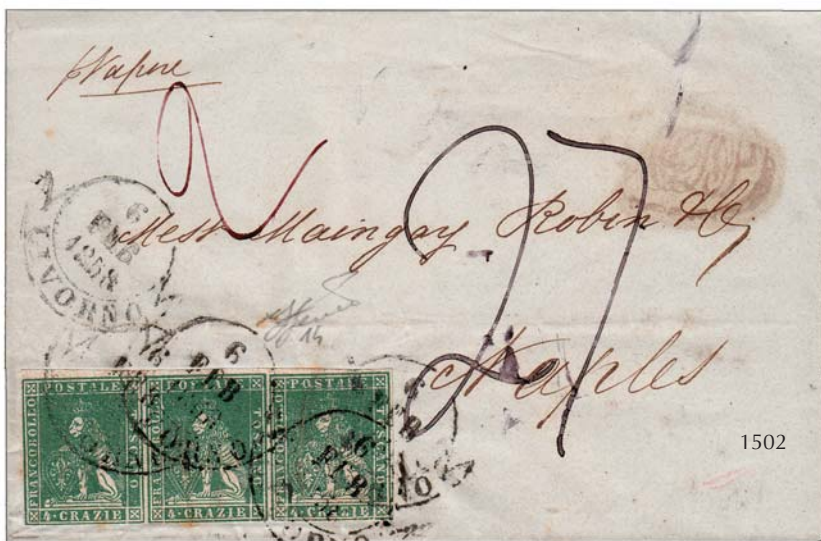 p Vapore
2
27
6
FEB
1858
LIVORNO
Mess Maingay Robin & Cy
Naples
6
FEB
6
FEB
LIVORNO
FRANCOBOLLO POSTALE TOSCANO
4 · CRAZIE
FRANCOBOLLO POSTALE TOSCANO
4 · CRAZIE
FRANCOBOLLO POSTALE TOSCANO
4 · CRAZIE
1502